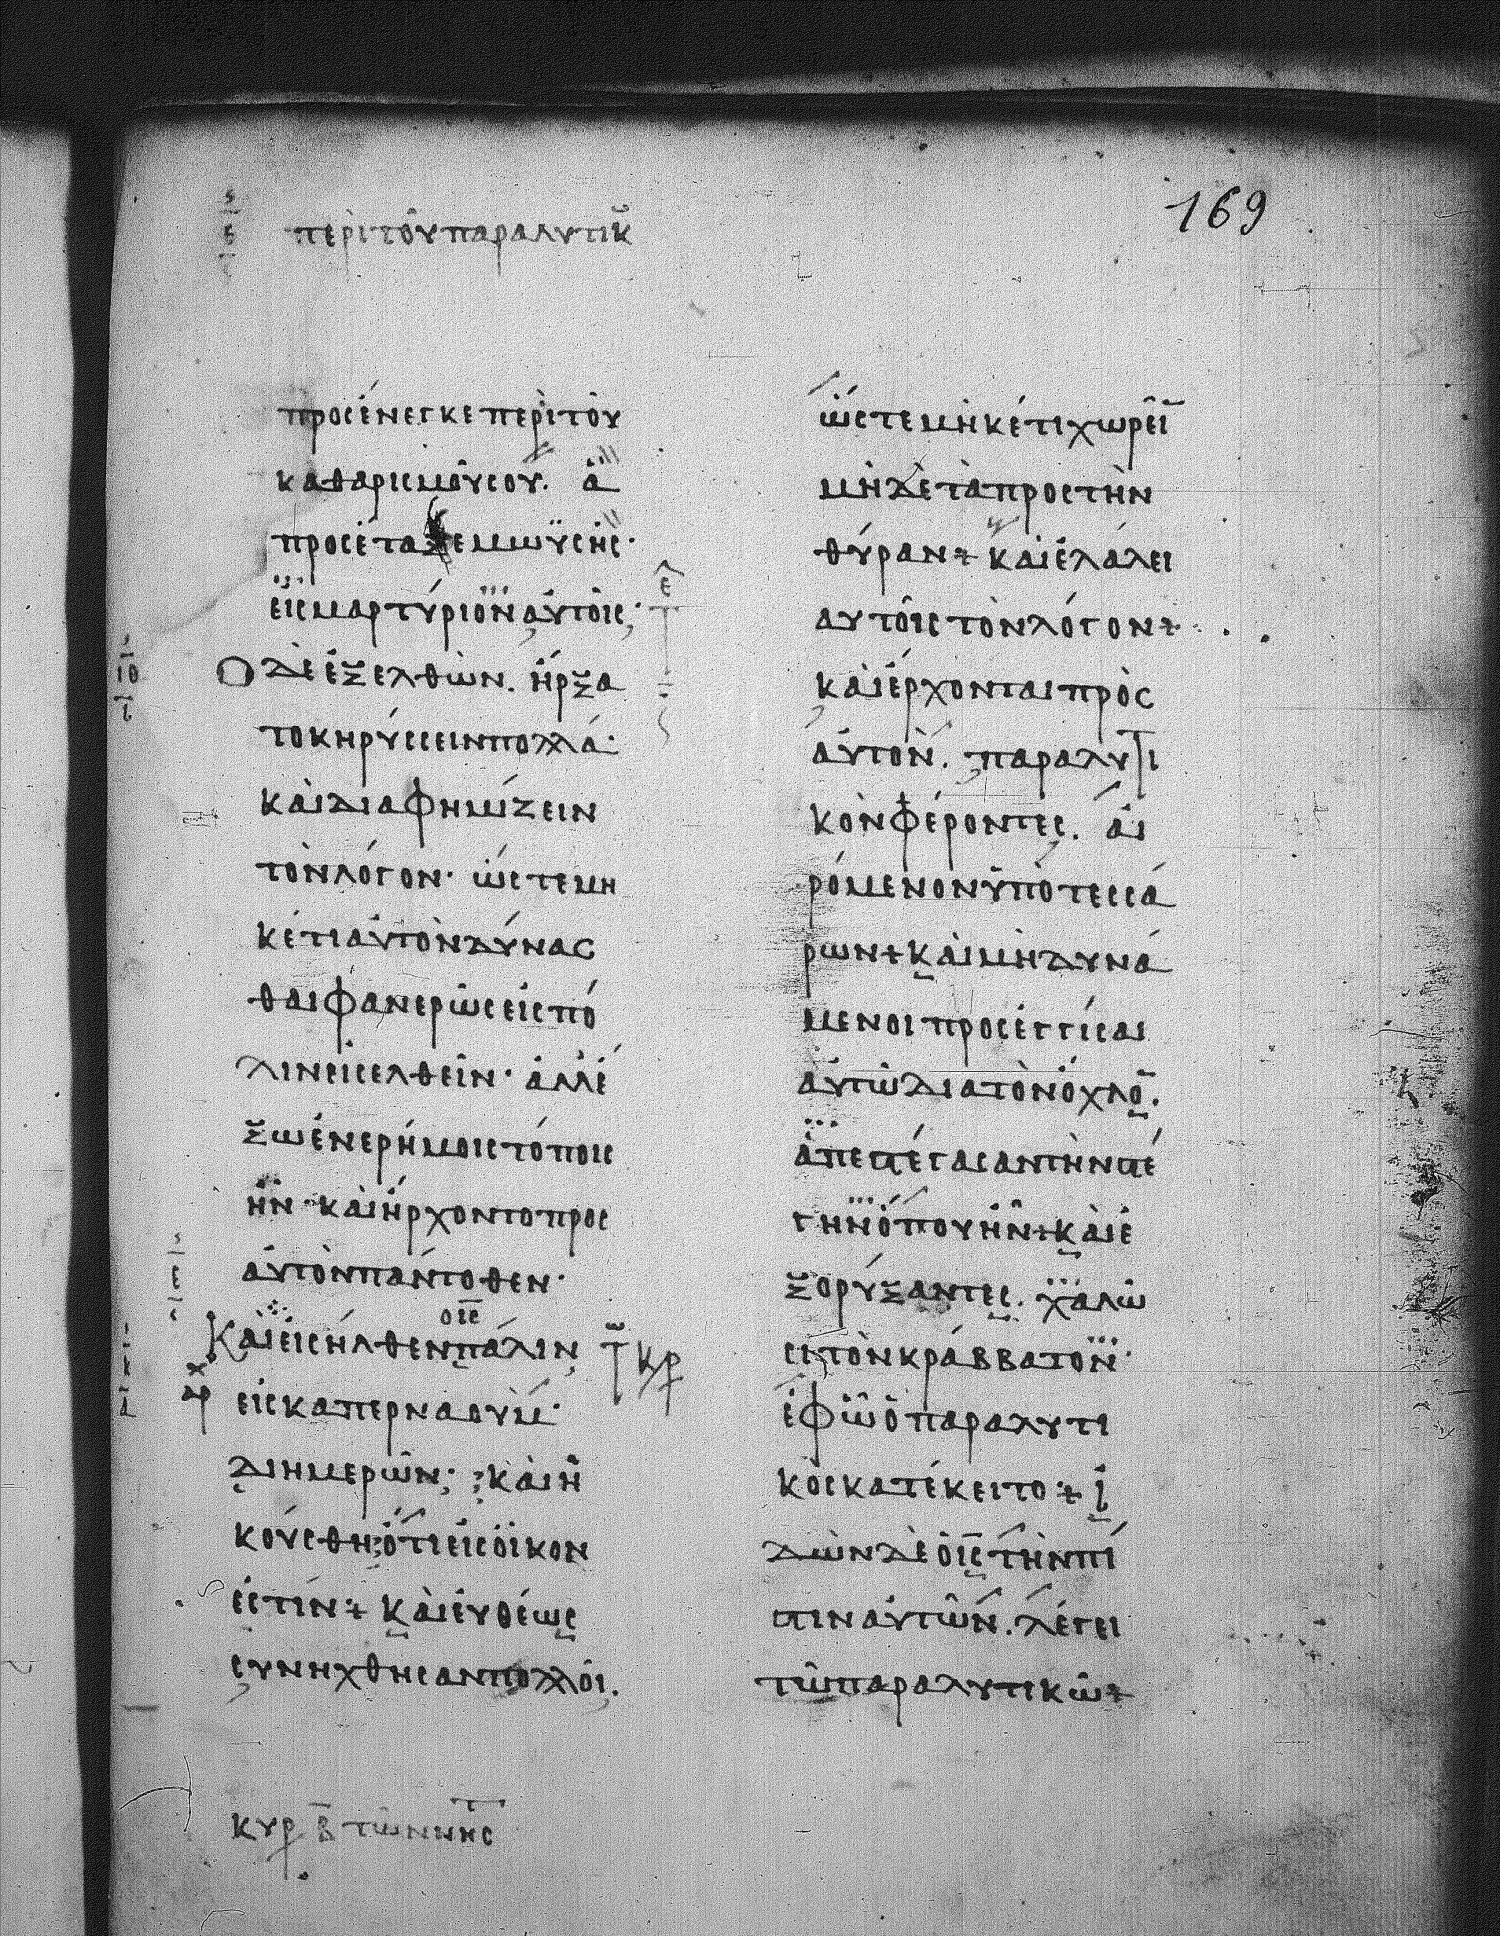 ε περὶ τοῦ παραλυτικ
169
προσένεγκε περὶ τοῦ
καθαρισμοῦ σου. ἃ
προσέταξε μωϋσῆς·
εἰς μαρτύριον αὐτοῖς·
ιθ Ο δὲ ἐξελθὼν. ἤρξα
το κηρύσσειν πολλά·
καὶ διαφημίζειν
τὸν λόγον· ὥστε μη
κέτι αὐτὸν δύνας
θαι φανερῶς εἰς πό
λιν εἰσελθεῖν· ἀλλ' ἔ
ξω ἐν ερήμοις τόποις
ἦν· καὶ ἤρχοντο προς
αὐτὸν πάντοθεν·
οις
Καὶ εἰσῆλθεν πάλιν
εἰς καπερναουὺμ·
δι ημερῶν· καὶ ἠ
κούσθη ὅτι εἰς οἶκον
ἐστίν + καὶ εὐθέως
συνήχθησαν πολλοὶ.
κυρ β τῶν νης
ὥστε μὴ κέτι χωρεῖ
μὴ δὲ τὰ προς τὴν
θύραν + καὶ ἐλάλει
αυτοῖς τὸν λόγον +
καὶ ἔρχονται πρὸς
αὐτὸν. παραλυτι
κὸν φέροντες. αἰ
ρόμενον ὑπὸ τεσσά
ρων + καὶ μὴ δυνά
μενοι προσέγγίσαι
αὐτῶ δια τὸν ὄχλο.
ἀπεστέγασαν τὴν στέ
γην ὅπου ἦν + καὶ ἐ
ξορύξαντες. χαλῶ
σι τὸν κράββατον·
ἐφ ὧ ὁ παραλυτι
κὸς κατέκειτο + ἰ
δὼν δὲ ὁ ις τὴν πί
στιν αὐτῶν. λέγει
τῶ παραλυτικῶ +